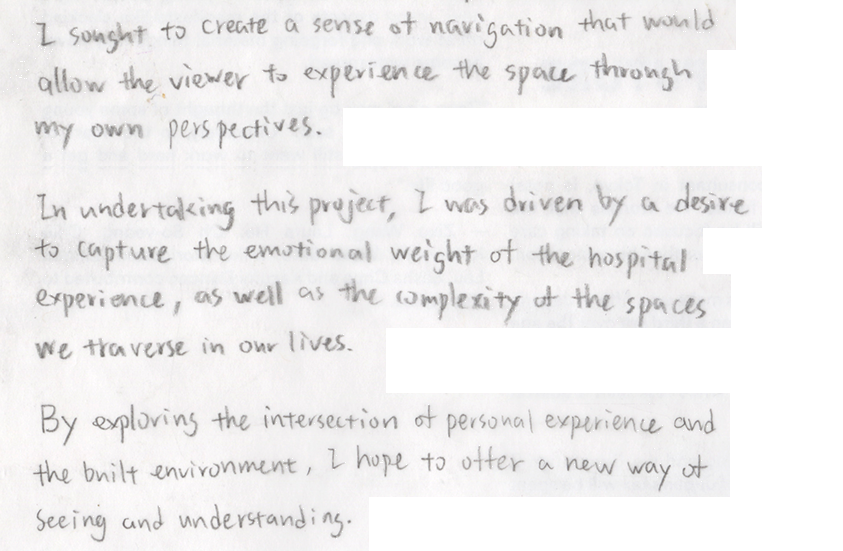 I sought to create a sense of navigation that would
allow the viewer to experience the space through
my own perspectives.
In undertaking this project, I was driven by a desire
to capture the emotional weight of the hospital
experience, as well as the complexity of the spaces
we traverse in our lives.
By exploring the intersection of personal experience and
the built environment, I hope to offer a new way of
seeing and understanding.